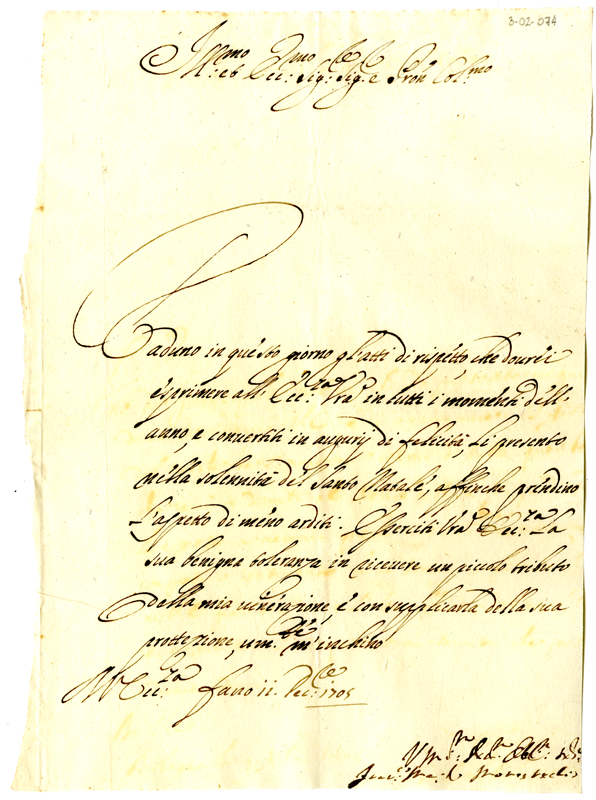 3-02-074
Ill:mo et Ecc:mo Sig:re Sig:re e Pron Col:mo
Raduno in questo giorno gl'atti di rispetto, che dourei
esprimere all' Ecc:za Vra in tutti i momenti dell'
anno, e convertiti in augurij di felicità, li presento
nella solennità del Santo Natale, affinche prendino
l'aspetto di meno arditi. Eserciti Vra Ecc:za la
sua benigna toleranza in riceuere un piccolo tributo
della mia uenerazione, e con supplicarla della sua
prottezione, um:te m'inchino
Ecc:za Fano 11. Dec:bre 1705